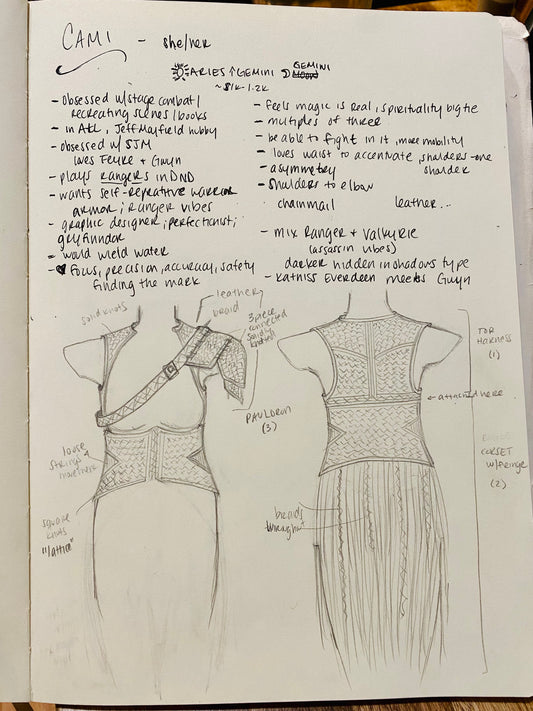 CAMI - she/her
ARIES ↑ GEMINI GEMINI
~$1k-1.2k
- obsessed w/stage combat/
recreating scenes/books
- in ATL, Jeff Mayfield hubby
- obsessed w/ SJM
loves Feyre + Gwyn
- plays rangers in DND
- wants self-reprative warrior
armor; ranger vibes
- graphic designer; perfectionist;
gryffindor
- would wield water
- focus, precision, accuracy, safety
finding the mark
- feels magic is real, spirituality big tie
- multiples of three
- be able to fight in it, more mobility
- loves waist to accentuate, sholders - one
sholder
- asymmetry
- sholders to elbow
chainmail leather...
- mix Ranger + Valkyrie
(assassin vibes)
darker hidden in shadows type
- Katniss Everdeen meets Gwyn
solid knots
leather
braid
3 piece
connected
solidly
knotted
PAULDRON
(3)
TOP
HARNESS
(1)
attached here
loose
strings
square
knots
"lattice"
braids
CORSET
w/fringe
(2)